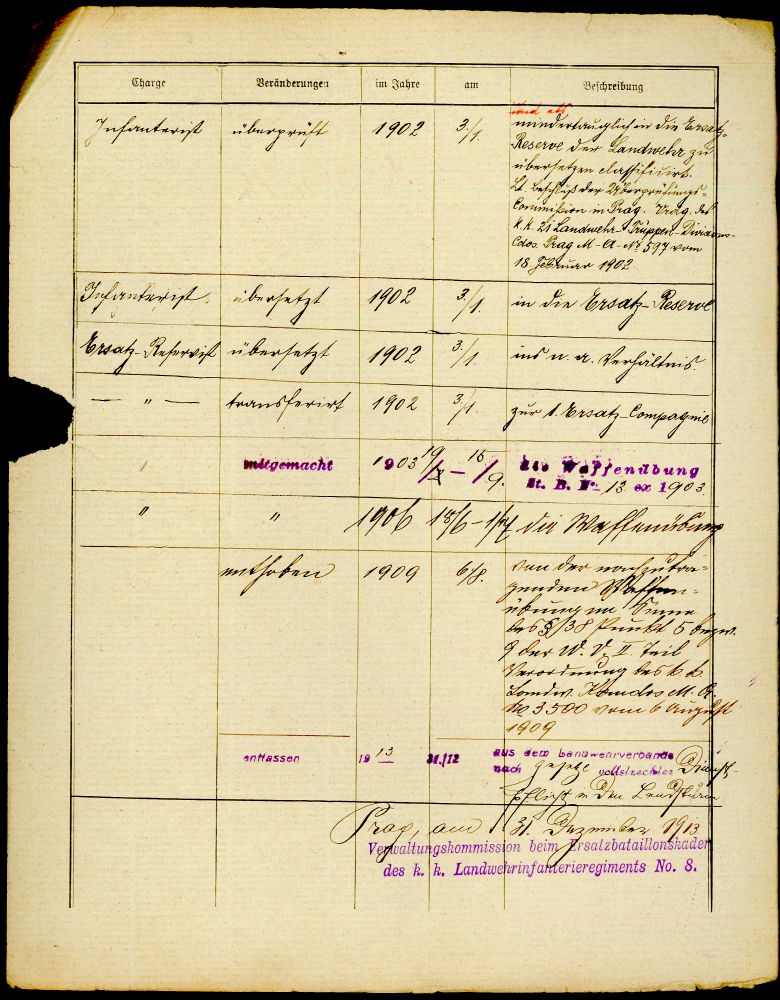 Charge Veränderungen im Jahre am Beschreibung
und als
Infanterist überprüft 1902 3/1. mindertauglich in die Ersatz-
Reserve der Landwehr zu
übersetzen classificirt.
Lt. Beschluß der Überprüfungs-
Commission in Prag. des
k.k. 21 Landwehr-Truppen-Divisions-
Cdos. Prag M-A-No 597 vom
18. Februar 1902.
Infanterist. übersetzt 1902 3/1. in die Ersatz-Reserve
Ersatz-Reservist übersetzt 1902 3/1. ins n. a. Verhältnis.
— " — transferirt 1902 3/1. zur 1. Ersatz-Compagnie
" mitgemacht 1903 – 15/9. die Waffenübung
St. B. No 13 ex 1903
" " 1906 die Waffenübung
enthoben 1909 6/8. von der nachzutra-
genden Waffen-
übung im Sinne
des § 38 Punkt 5 bezw.
9 der W. V. II. Teil
Verordnung des k.k.
Landw. Kmdos M. A.
No 3500 vom 6 August
1909
entlassen 1913 31./12 aus dem Landwehrverbande
nach gesetzl. vollstreckter Dienst-
pflicht in den Landsturm
Prag, am 31. Dezember 1913
Verwaltungskommission beim Ersatzbataillonskader
des k. k. Landwehrinfanterieregiments No. 8.